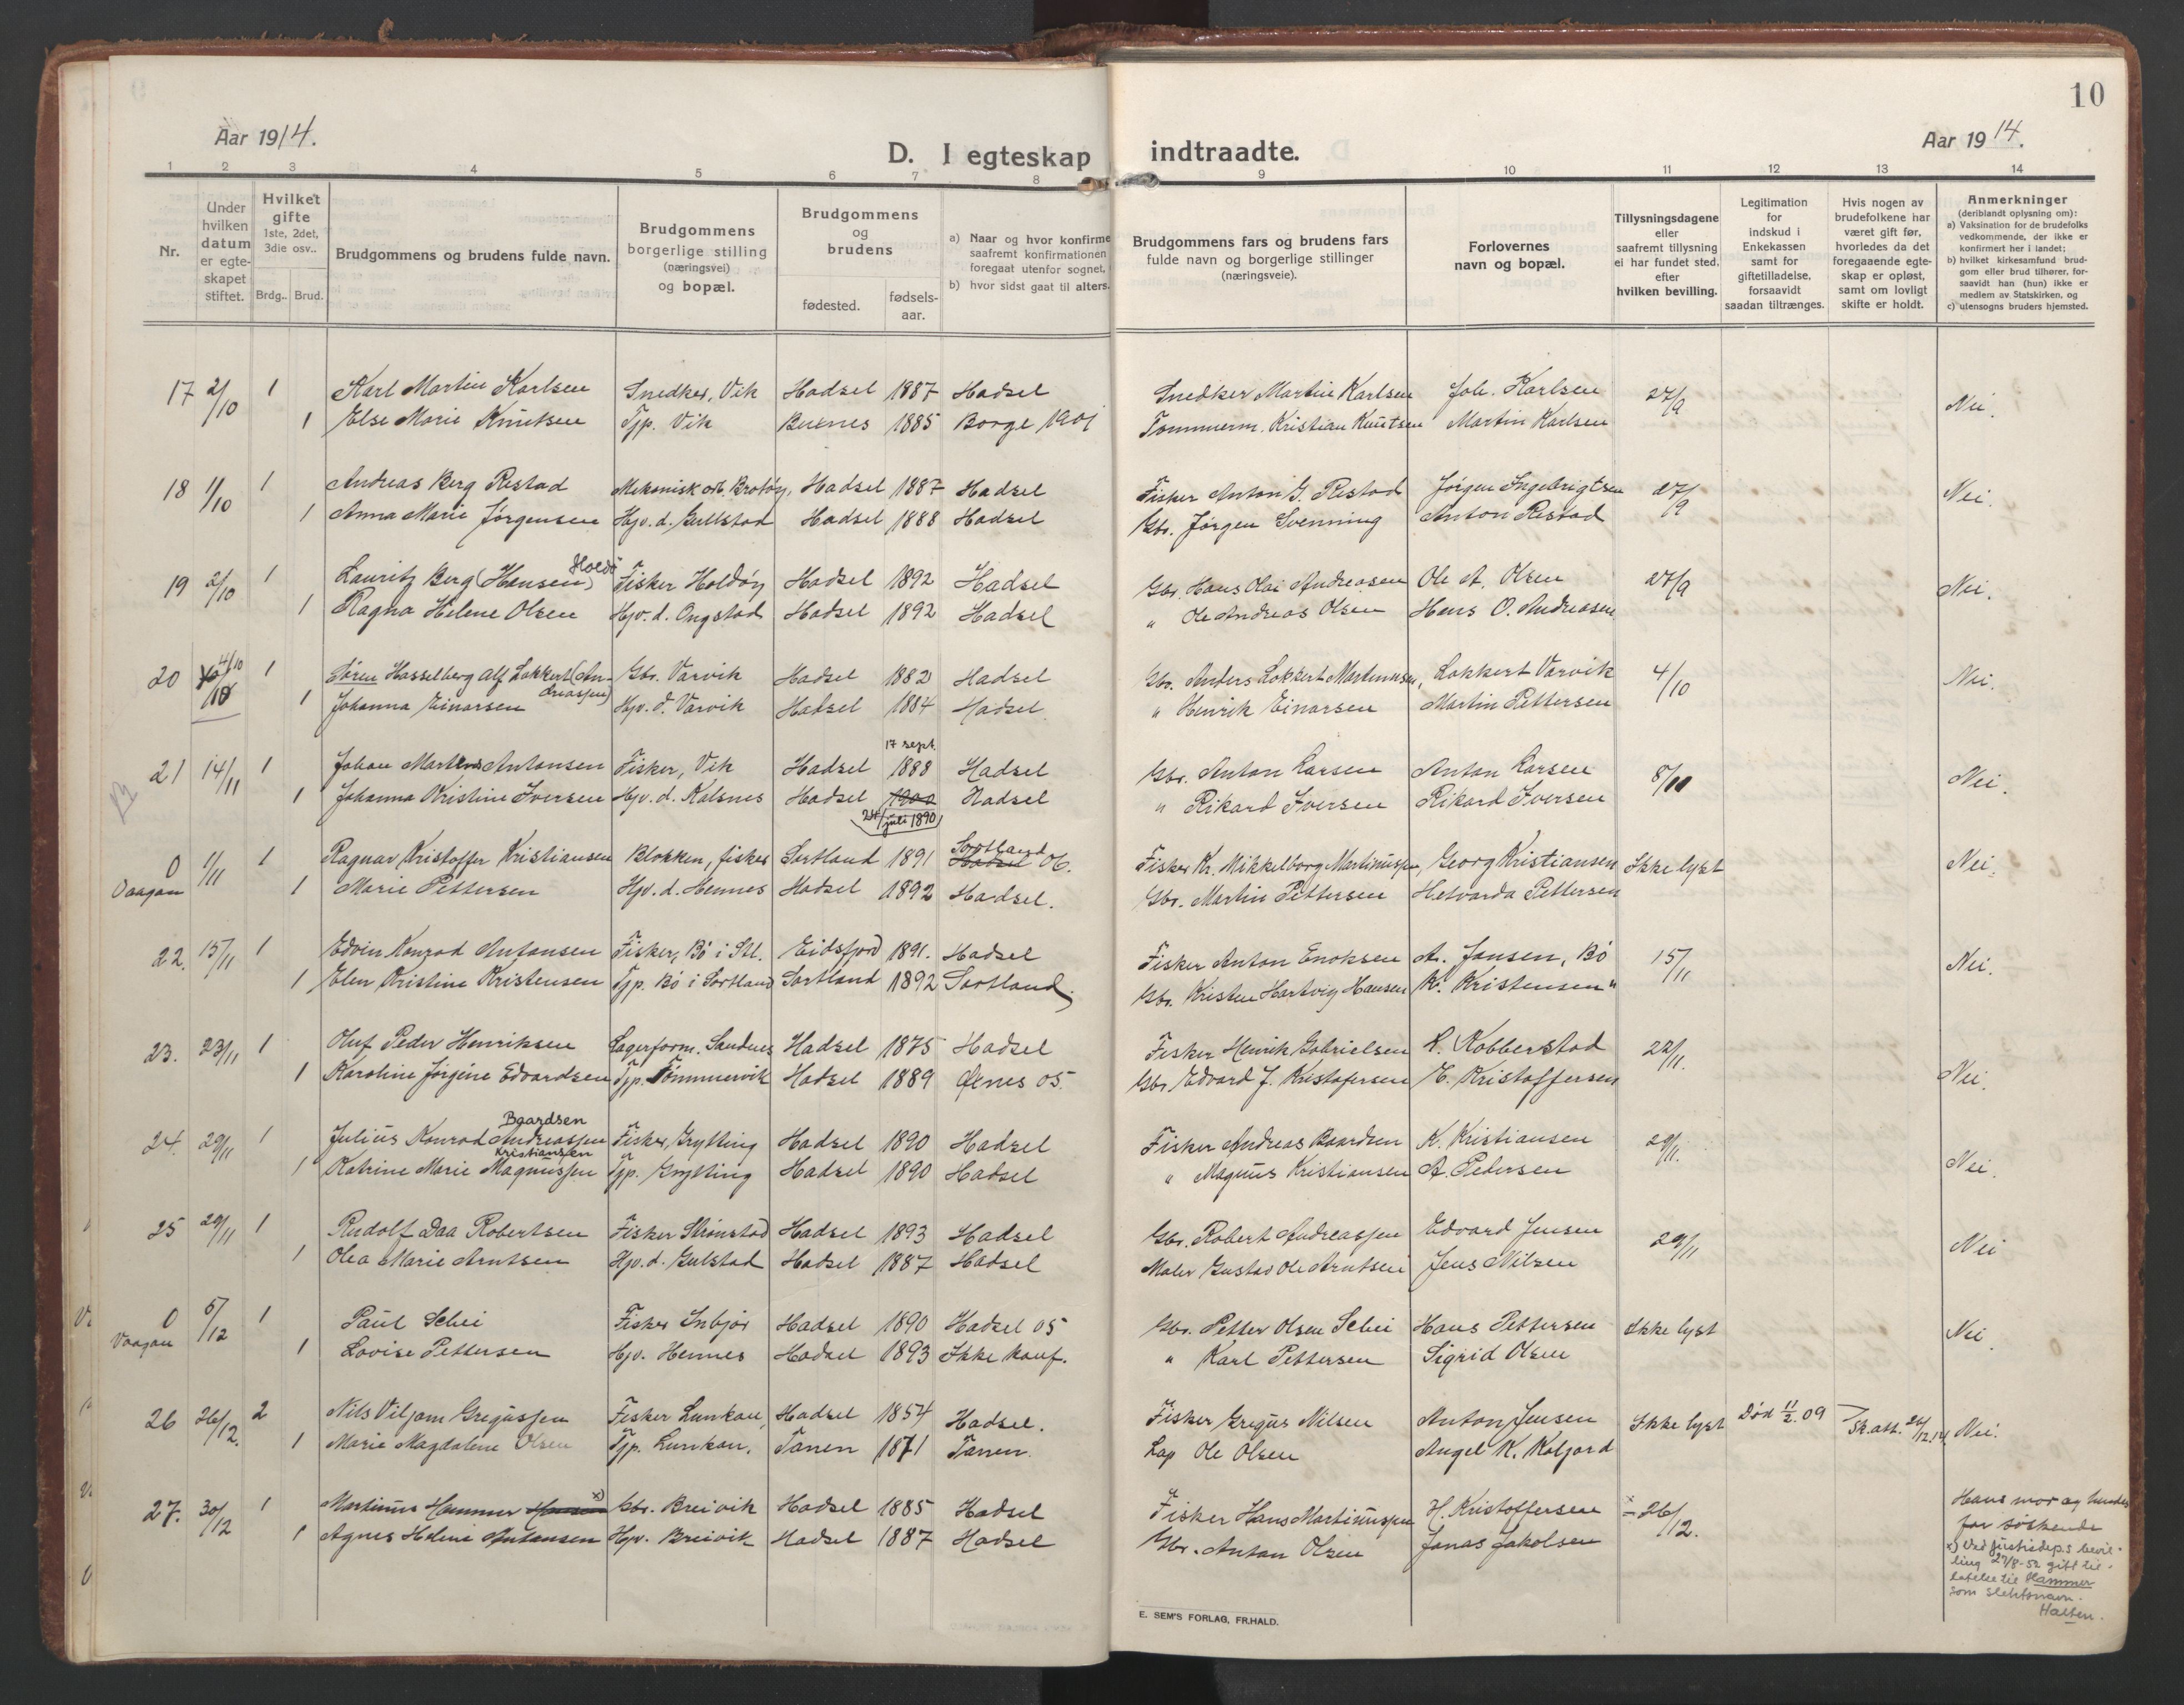 10
Aar 1914.
Aar 1914.
D. I egteskap indtraadte.
1 2 3 4 5 6 7 8 9 10 11 12 13 14
Nr.
Under hvilken datum er egte-skapet stiftet.
Hvilket gifte 1ste, 2det, 3die osv..
Brdg.. Brud.
Brudgommens og brudens fulde navn.
Brudgommens borgerlige stilling (næringsvei) og bopæl.
Brudgommens og brudens
fødested.
fødsels-aar.
a) Naar og hvor konfirme saafremt konfirmationen foregaat utenfor sognet,
b) hvor sidst gaat til alters.
Brudgommens fars og brudens fars fulde navn og borgerlige stillinger (næringsveie).
Forlovernes navn og bopæl.
Tillysningsdagene eller saafremt tillysning ei har fundet sted, efter hvilken bevilling.
Legitimation for indskud i Enkekassen samt for giftetilladelse, forsaavidt saadan tiltrænges.
Hvis nogen av brudefolkene har været gift før, hvorledes da det foregaaende egte-skap er opløst, samt om lovligt skifte er holdt.
Anmerkninger (deriblandt oplysning om):
a) Vaksination for de brudefolks vedkommende, der ikke er konfirmert her i landet;
b) hvilket kirkesamfund brud-gom eller brud tilhører, for-saavidt han (hun) ikke er medlem av Statskirken, og
c) utensogns bruders hjemsted.
17 2/10 1 Karl Martin Karlsen Snedker, Vik Hadsel 1887 Hadsel Snedker Martin Karlsen Joh. Karlsen 27/9 Nei.
1 Else Marie Knutsen Tjp. Vik Buxnes 1885 Borge 1901 Tømmerm. Kristian Knutsen Martin Karlsen
18 1/10 1 Andreas Berg Restad Mekanisk arb. Brotøy, Hadsel 1887 Hadsel Fisker Anton G. Restad Jørgen Ingebrigtsen 27/9 Nei.
1 Anna Marie Jørgensen Hjv. d. Gullstad Hadsel 1888 Hadsel Gbr. Jørgen Svenning Anton Restad
19 2/10 1 Lauritz Berg (Hansen) Holdö Fisker Holdøy Hadsel 1892 Hadsel Gbr. Hans Olai Andreasen Ole A. Olsen 27/9 Nei.
1 Ragna Helene Olsen Hjv. d. Ongstad Hadsel 1892 Hadsel " Ole Andreas Olsen Hans O. Andreasen
20 4/10 1 Søren Hasselberg Alf Lokkert (An-dreassen) Gbr. Varvik Hadsel 1882 Hadsel Gbr. Anders Lokkert Martinussen, Lokkert Varvik 4/10 Nei.
1 Johanna Einarsen Hjv. d. Varvik Hadsel 1884 Hadsel. " Henrik Einarsen Martin Pettersen
21 14/11 1 Johan Martens Antonsen Fisker, Vik Hadsel 17 sept. 1888 Hadsel Gbr. Anton Larsen Anton Larsen 8/11 Nei.
1 Johanna Kristine Iversen Hjv. d. Kalsnes Hadsel 1900 24/juli 1890 Hadsel " Rikard Iversen Rikard Iversen
0 Vaagan 1/11 1 Ragnar Kristoffer Kristiansen Blokken, fisker Sortland 1891 Sortland Hadsel 06. Fisker Kr. Mikkelborg Martinussen, Georg Kristiansen Ikke lyst Nei.
1 Marie Pettersen Hjv. d. Hennes Hadsel 1892 Hadsel. Gbr. Martin Pettersen Hetvarda Pettersen
22. 15/11 1 Edvin Konrad Antonsen Fisker, Bö i Stl. Eidsfjord 1891. Hadsel Fisker Anton Enoksen A. Jansen, Bö 15/11 Nei.
1 Elen Kristine Kristensen Tjp. Bö i Sortland Sortland 1892 Sortland. Gbr. Kristen Hartvig Hansen K. Kristensen "
23. 23/11 1 Oluf Peder Henriksen Lagerform. Sandnes Hadsel 1875 Hadsel Fisker Henrik Gabrielsen R. Robberstad 22/11. Nei.
1 Karoline Jørgine Edvardsen Tjp. Tømmervik Hadsel 1889 Øxnes 05. Gbr. Edvard J. Kristofersen E. Kristoffersen
24. 29/11 1 Julius Konrad Andreassen Baardsen Fisker, Grytting Hadsel 1890 Hadsel Fisker Andreas Baardsen K. Kristiansen 29/11. Nei.
1 Katrine Marie Magnussen Kristiansen Tjp. Grytting Hadsel 1890 Hadsel " Magnus Kristiansen A. Pedersen
25 29/11 1 Rudolf Daa Robertsen Fisker Strønstad Hadsel 1893 Hadsel Gbr. Robert Andreassen Edvard Jensen 29/11 Nei
1 Olea Marie Arntsen Hjv. d. Gulstad Hadsel 1887 Hadsel Maler Gustav Ole Arntsen Jens Nilsen
0 Vaagan 5/12 1 Paul Schei Fisker Inbjør Hadsel 1890 Hadsel 05 Gbr. Petter Olsen Schei Hans Pettersen Ikke lyst Nei.
1 Lovise Pettersen Hjv. Hennes Hadsel 1893 Ikke konf. " Karl Pettersen Sigrid Olsen
26 26/12. 2 Nils Viljam Gregussen Fisker Lunkan, Hadsel 1854 Hadsel. Fisker Gregus Nilsen Anton Jensen Ikke lyst Død 11/2. 09 Sk.att. 26/12.14. Nei.
1 Marie Magdalene Olsen Tjp. Lunkan. Tanen 1871 Tanen. Lap Ole Olsen Angel K. Kaljord
27. 30/12 1 Martinus Hammer Hansen x) Gbr. Breivik Hadsel 1885 Hadsel Fisker Hans Martinussen H. Kristoffersen 26/12. Hans mor og hendes far söskende
1 Agnes Helene Antonsen Hjv. Breivik Hadsel 1887 Hadsel Gbr. Anton Olsen Jonas Jakobsen
x) Ved justisdep.s bevil-
ling 27/8-52 gitt til-
latelse til Hammer
som slektsnavn.
Halten.
E. SEM'S FORLAG, FR.HALD.